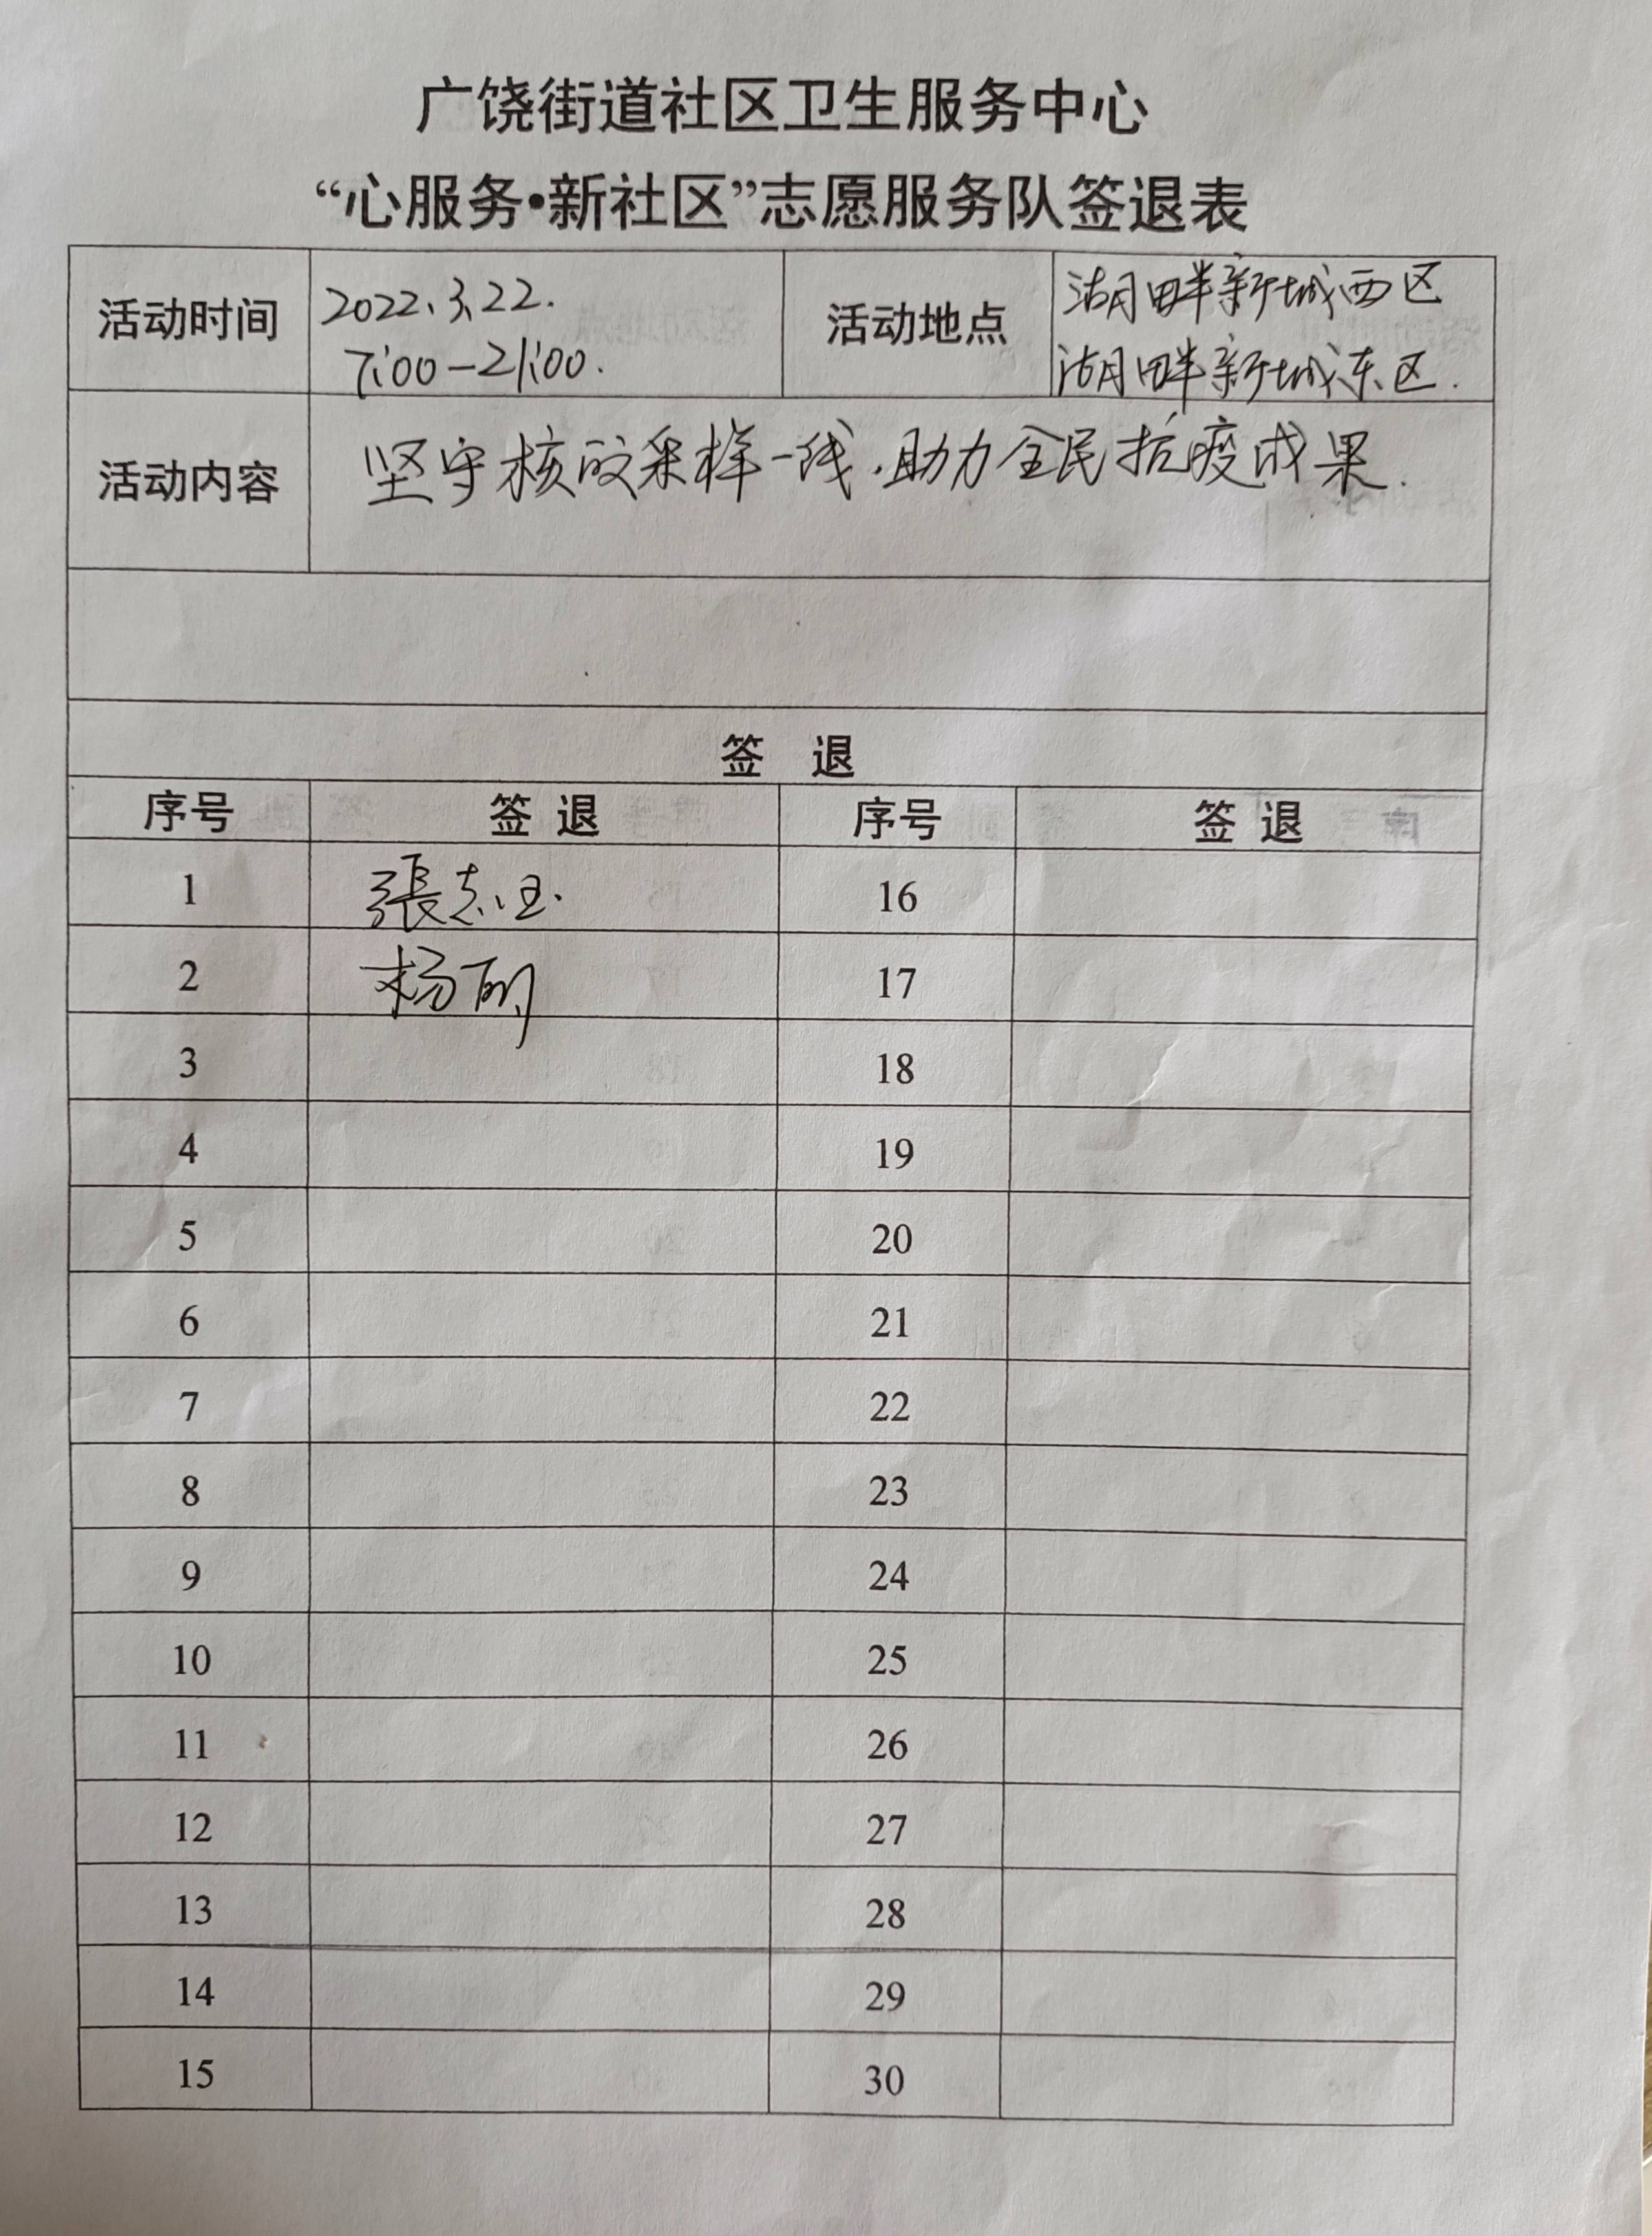 广饶街道社区卫生服务中心
“心服务•新社区”志愿服务队签退表
活动时间 2022.3.22. 活动地点 湖畔新城西区
7:00-21:00. 湖畔新城东区.
活动内容 坚守核酸采样一线,助力全民抗疫成果.
签 退
序号 签 退 序号 签 退
1 張志玉. 16
2 杨丽 17
3 18
4 19
5 20
6 21
7 22
8 23
9 24
10 25
11 26
12 27
13 28
14 29
15 30